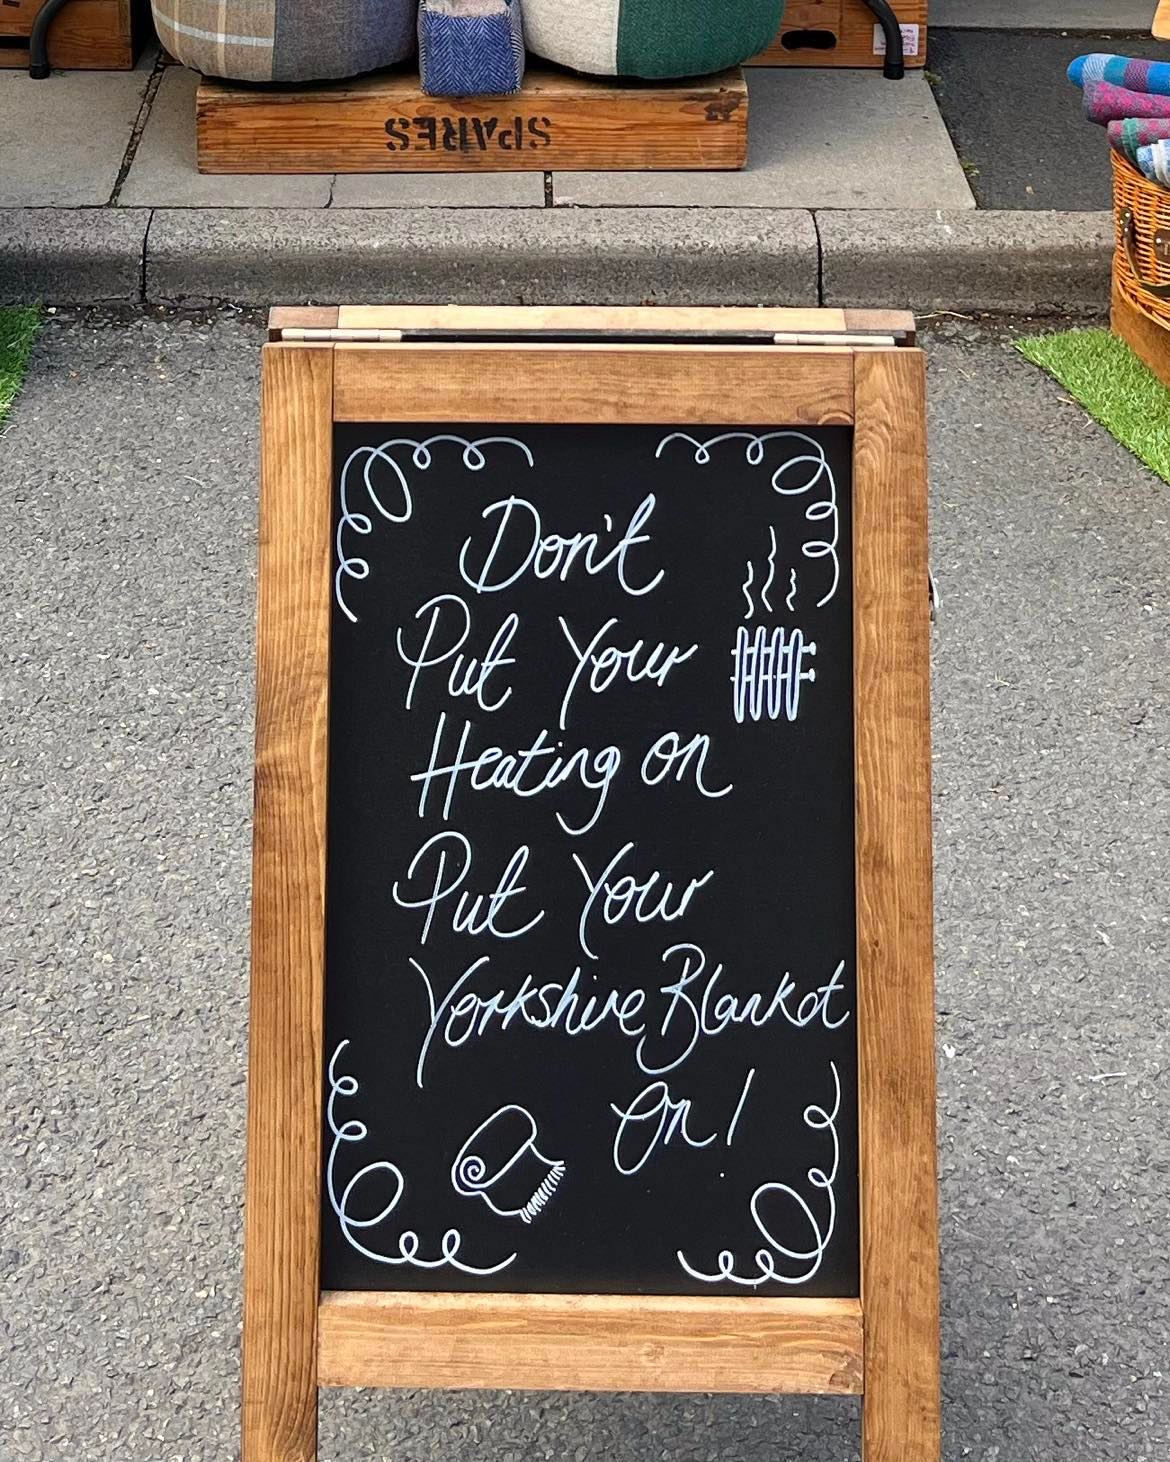 SPARES
Don't
Put Your
Heating on
Put Your
Yorkshire Blanket
On!